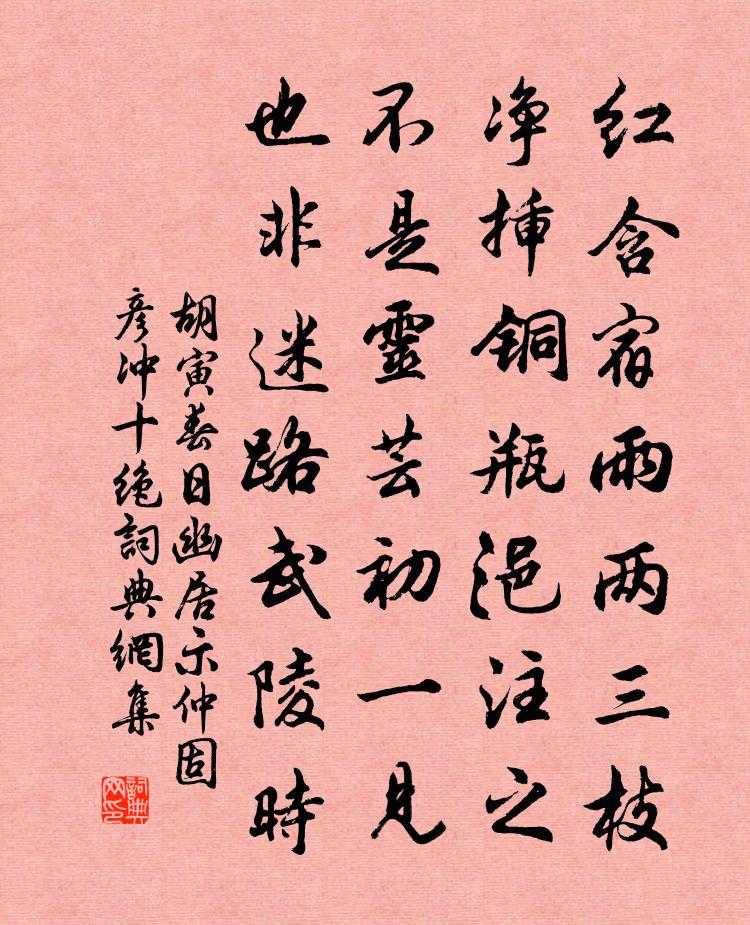 红含宿雨两三枝
净挿铜瓶浥注之
不是靈芸初一見
也非迷路武陵時
胡寅春日幽居示仲固
彦冲十绝詞典網集
詞典网印